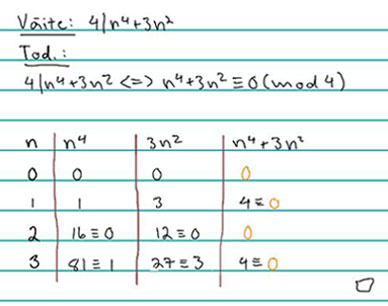 Väite: 4|n⁴+3n²
Tod.:
4|n⁴+3n² <=> n⁴+3n² ≡ 0 (mod 4)
n n⁴ 3n² n⁴+3n²
0 0 0 0
1 1 3 4≡0
2 16≡0 12≡0 0
3 81≡1 27≡3 4≡0
□